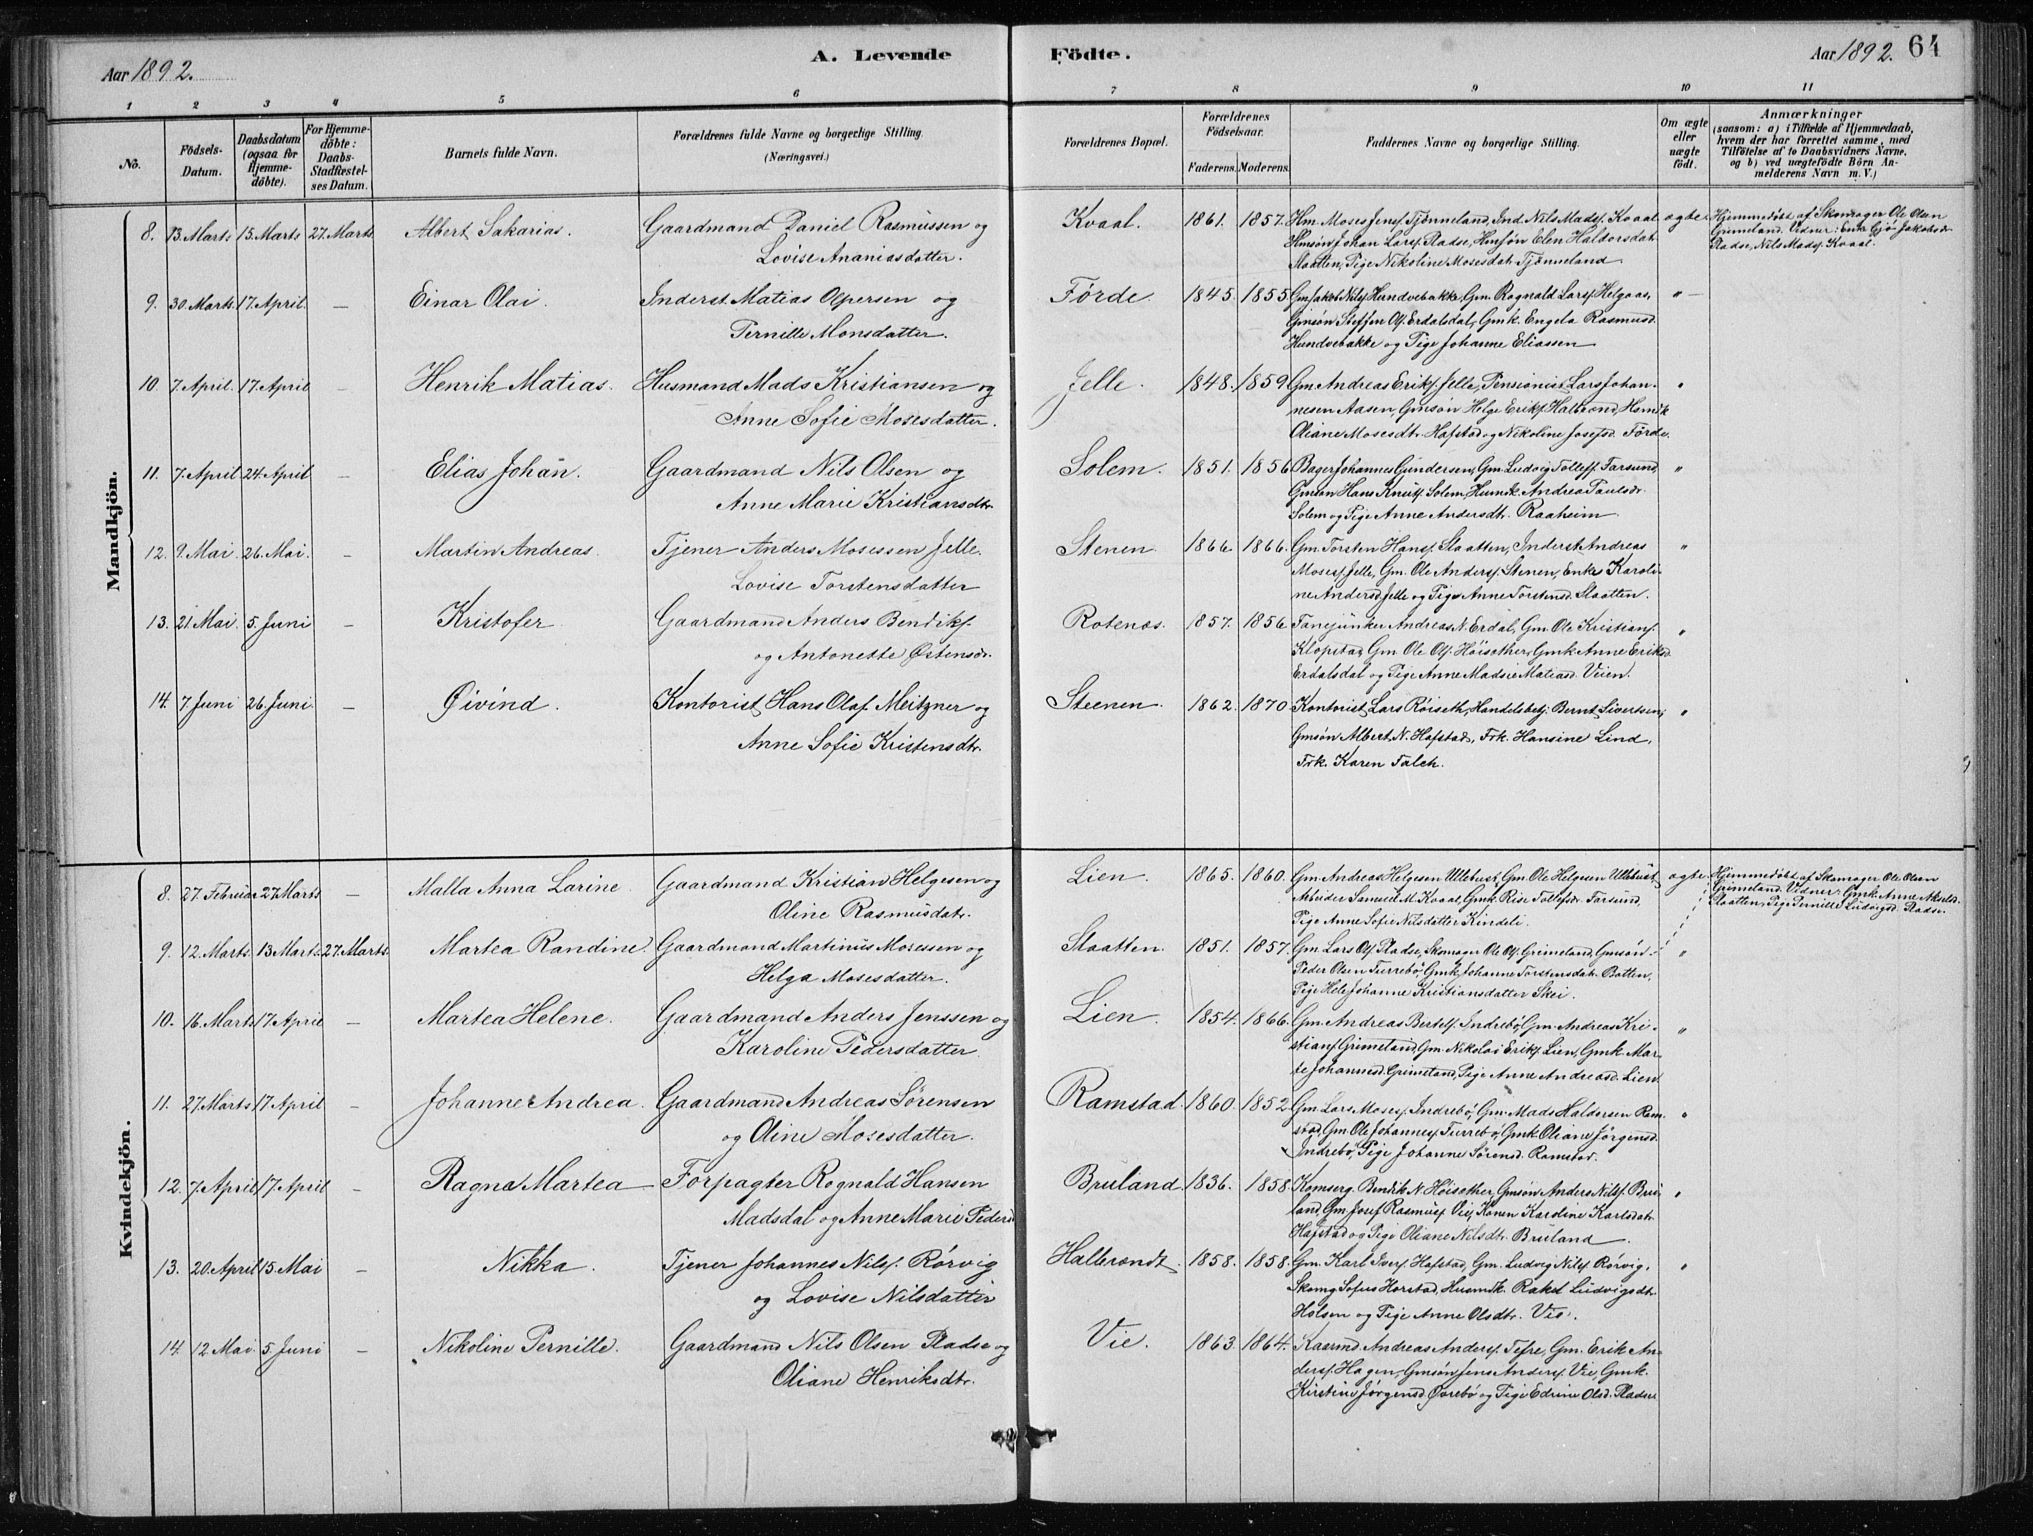 Aar 1892. A. Levende Födte. Aar 1892. 64
1 2 3 4 5 6 7 8 9 10 11
No. Födsels-Datum. Daabsdatum (ogsaa for Hjemmedöbte). For Hjemmedöbte: Daabs-Stadfæstelses Datum. Barnets fulde Navn. Forældrenes fulde Navne og borgerlige Stilling. (Næringsvei.) Forældrenes Bopæl. Forældrenes Födselsaar. Faderens. Moderens. Faddernes Navne og borgerlige Stilling. Om ægte eller uægte födt. Anmærkninger (saasom: a) i Tilfælde af Hjemmedaab, hvem der har forrettet samme, med Tilföielse af to Daabsvidners Navne, og b) ved uægtefödte Börn Anmelderens Navn m. V.)
Mandkjön.
8. 13. Marts 15. Marts 27. Marts Albert Sakarias. Gaardmand Daniel Rasmussen og Kvaal. 1861. 1857. Hm. Moses Jens. Tjønneland, Ind. Nils Mads. Kvaal ægte Hjemmedøbt af Skomager Ole Olsen
Lovise Ananiasdatter. Hmsøn Johan Lars. Fladse, Hmsøn Elen Haldorsdat. Grimeland. Vidner: Enke Gjø. Jakobsdr.
Slaatten, Pige Nikoline Mosesdat. Tjønneland Fladse, Nils Mads. Kvaal.
9. 30. Marts. 17. April — Einar Olai. Inderst Matias Olpersen og Førde. 1845. 1855. Gm. Jakob Nils. Hundvebakke, Gm. Rognald Lars. Helgaas, " —
Pernille Monsdatter. Gmsøn Steffen Ol. Erdalsdal, Gmk. Engela Rasmusd.
Hundvebakke og Pige Johanne Eliassen
10. 7. April. 17. April — Henrik Matias. Husmand Mads Kristiansen og Jelle. 1848. 1859. Gm. Andreas Eriks. Jelle, Pensionist Lars Johan- "
Anne Sofie Mosesdatter. nesen Aasen, Gmsøn Helge Eriks. Halbrend, Hsmk.
Oliane Mosesdtr. Hafstad og Nikoline Josefsd. Førde.
11. 7. April 24. April — Elias Johan. Gaardmand Nils Olsen og Solem. 1851. 1856 Bager Johannes Gundersen, Gm. Ludvig Tollefs. Farsund, "
Anne Marie Kristiansdtr. Gmsøn Hans Knuts. Solem, Husmk. Andrea Paulsdr.
Solem og Pige Anne Andersdtr. Raaheim
12. 9. Mai. 26. Mai. — Martin Andreas. Tjener Anders Mosessen Jelle. Stenen. 1866. 1866. Gm. Torsten Hans. Slaatten, Inderst Andreas "
Lovise Torstensdatter Moses. Jelle, Gm. Ole Anders. Stenen, Enke Karoli-
ne Andersd. Jelle og Pige Anne Torstensd. Slaatten.
13. 21. Mai. 5. Juni — Kristofer Gaardmand Anders Bendiks. Rotenæs. 1857. 1856 Fanejunker Andreas N. Erdal, Gm. Ole Kristians. "
og Antonette Østensdr. Klopstad, Gm. Ole Ol. Höisæther, Gmk. Anne Eriksd.
Erdalsdal og Pige Anne Madsie Matiasd. Vieen.
14. 7. Juni 26. Juni. — Øivind. Kontorist Hans Olaf Meitzner og Steenen. 1862. 1870. Kontorist Lars Röiseth, Handelsbetj. Bernt Sivertsen, "
Anne Sofie Kristensdtr. Gmsøn Albert N. Hafstad, Frk. Hansine Lind,
Frk. Karen Falch.
Kvindekjön.
8. 27. Februar 27. Marts — Malla Anna Larine. Gaardmand Kristian Helgesen og Lien. 1865. 1860. Gm. Andreas Helgesen Ullebust, Gm. Ole Helgesen Ullebust, ægte Hjemmedøbt af Skomager Ole Olsen
Oline Rasmusdatr. Arbeider Samuel M. Kvaal, Gmk. Rise Tollefsdr. Farsund, Grimeland. Vidner: Gmk. Anne Akselsd.
Pige Anne Sofie Nilsdatter Kindeli. Slaatten, Pige Pernille Ludvigsd. Fladse.
9. 12. Marts. 13. Marts. 27. Marts. Martea Randine. Gaardmand Martinus Mosessen og Slaatten. 1851. 1857. Gm. Lars Ol. Fladse, Skomager Ole Ol. Grimeland, Gmsøn "
Helga Mosesdatter. Peder Olsen Furrebø, Gmk. Johanne Torstensdatr. Botten,
Pige Hele Johanne Kristiansdatter Skei.
10. 16. Marts 17. April — Martea Helene. Gaardmand Anders Jenssen og Lien. 1854. 1866. Gm. Andreas Bertel. Indrebø, Gm. Andreas Kri- "
Karoline Pedersdatter. stians. Grimeland, Gm. Nikolai Eriks. Lien, Gmk. Mar-
te Johannesd. Grimeland, Pige Anne Andreasd. Lien.
11. 27. Marts 17. April — Johanne Andrea. Gaardmand Andreas Sørensen Ramstad. 1860. 1852. Gm. Lars Moses. Indrebø, Gm. Mads Haldorsen Ram- "
og Oline Mosesdatter. stad, Gm. Ole Johannes. Furrebø, Gmk. Oliane Jørgensd.
Indrebø, Pige Johanne Sørensd. Ramstad.
12. 7. April 17. April — Ragna Martea Forpagter Rognald Hansen Bruland. 1836. 1858. Komserg. Bendik N. Höisæther, Gmsøn Anders Nils. Bru- "
Madsdal og Anne Marie Pedersd. land, Gm. Josef Rasmus. Vie, Konen Karoline Karlsdatr.
Hafstad og Pige Oliane Nilsdtr. Bruland.
13. 20. April 15. Mai — Nikka. Tjener Johannes Nils. Rørvig Halbrendt. 1858. 1858. Gm. Karl Ivers. Hafstad, Gm. Ludvig Nils. Rørvig, "
og Lovise Nilsdatter Skomg. Sofus Horstad, Husmk. Rakel Ludvigsdtr.
Holsen og Pige Anne Olsdtr. Vie.
14. 12. Mai. 5. Juni — Nikoline Pernille. Gaardmand Nils Olsen Fladse og Vie. 1863. 1864. Kaarmd. Andreas Anders. Tefre, Gm. Erik An-
Oliane Henriksdtr. ders. Hagen, Gmsøn Jens Anders. Vie, Gmk.
Kirstine Jørgensd. Øvrebø og Pige Edrine Olsd. Fladse